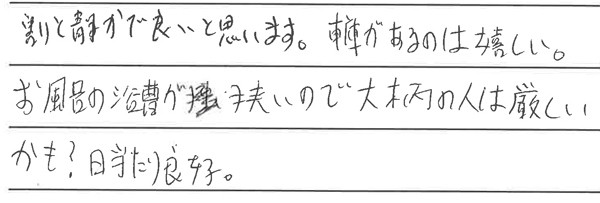 割と静かで良いと思います。車庫があるのは嬉しい。
お風呂の浴槽が狭いので大柄の人は厳しい
かも?日当たり良好。